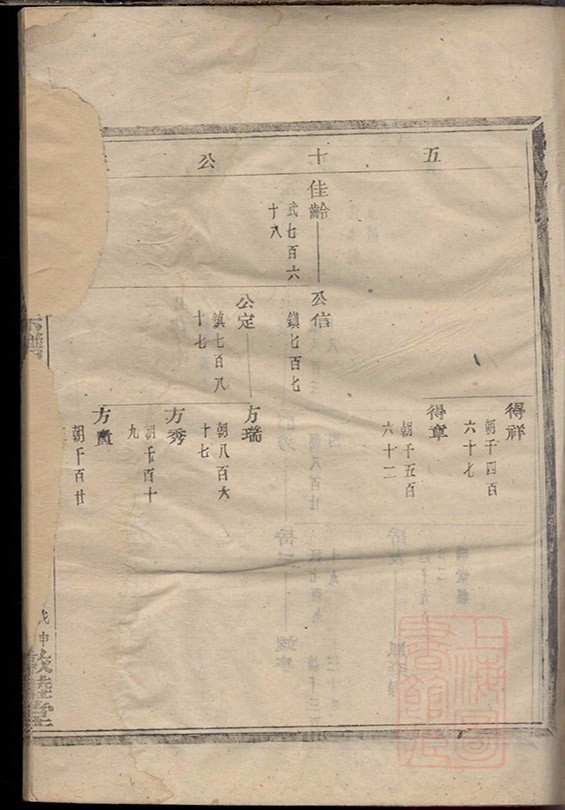 五十公
佳齡
武七百六
十八
公信
鎮七百七
公定
鎮七百八
十七
得祥
朝千四百
六十七
得章
朝千五百
六十二
方瑞
朝八百六
十七
方秀
朝千百十
九
方
朝千百廿
宗譜
戊申敦睦堂
上海圖書館藏